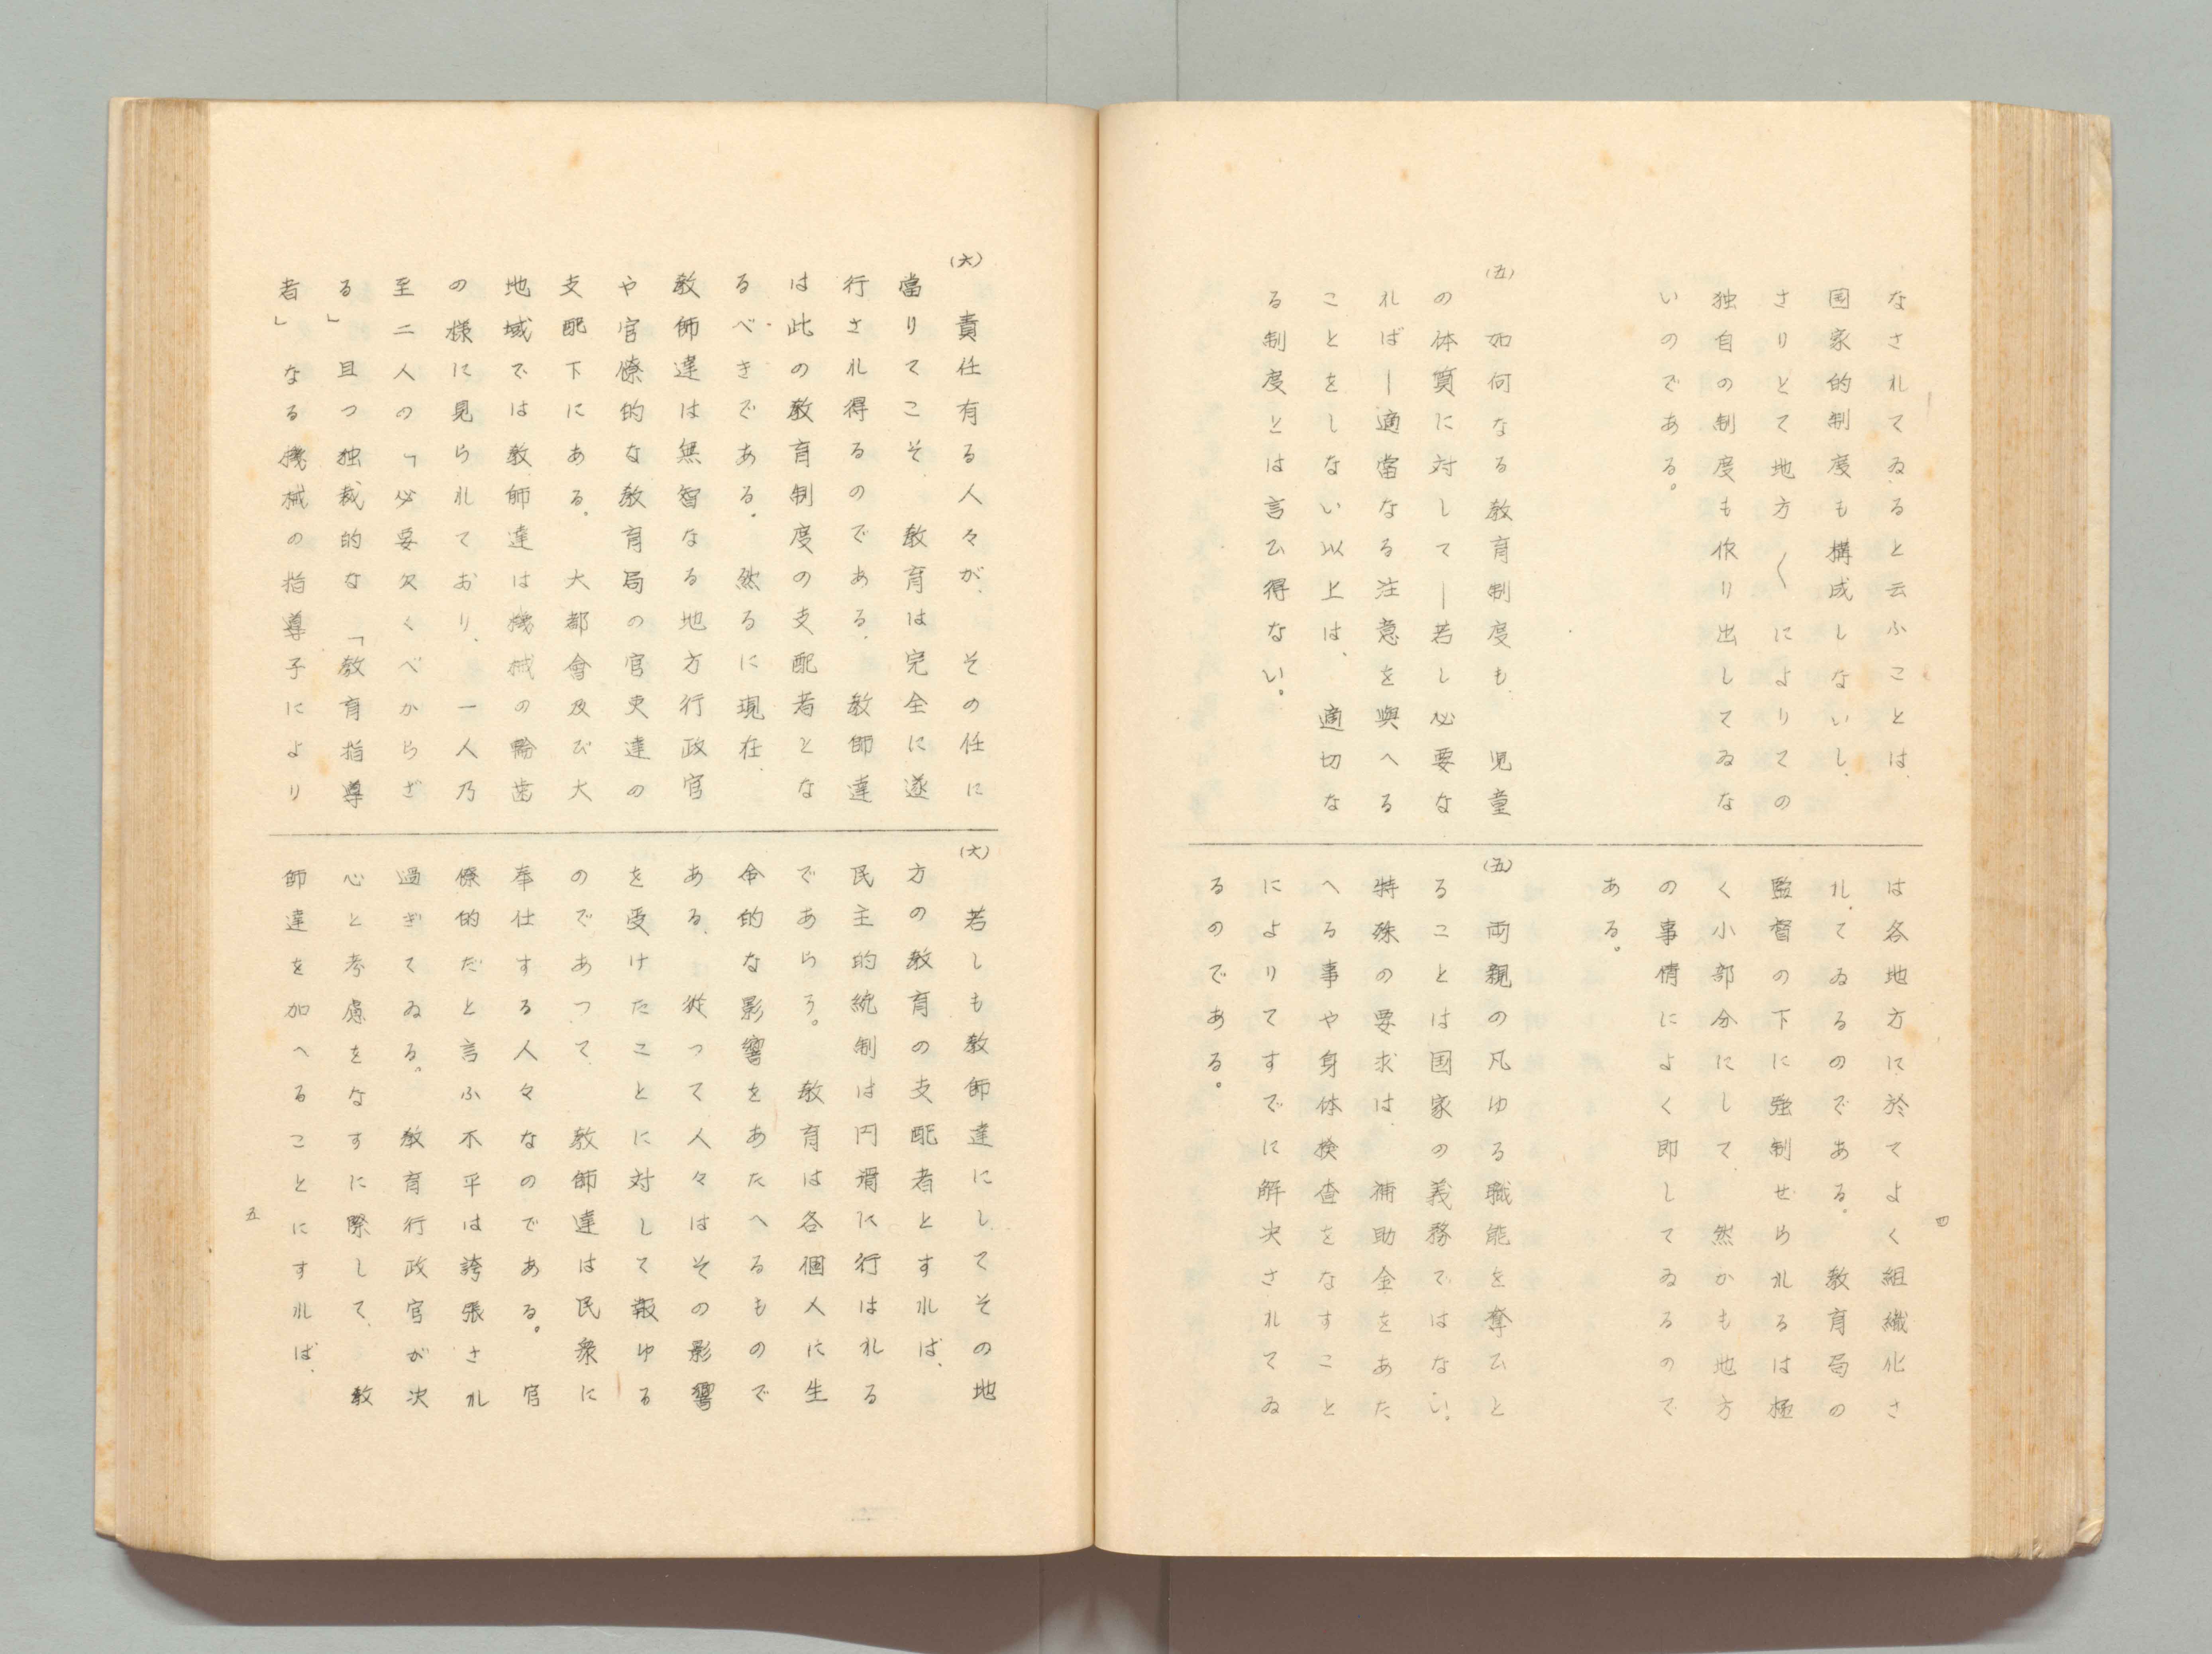 なされてゐると云ふことは、
国家的制度も構成しないし、
さりとて地方〱によりての
独自の制度も作り出してゐな
いのである。
(五)　如何なる教育制度も、児童
の体質に対して―若し必要な
れば―適當なる注意を與へる
ことをしない以上は、適切な
る制度とは言ひ得ない。
は各地方に於てよく組織化さ
れてゐるのである。教育局の
監督の下に強制せられるは極
く小部分にして、然かも地方
の事情によく即してゐるので
ある。
(五)　両親の凡ゆる職能を奪ひと
ることは国家の義務ではない。
特殊の要求は、補助金をあた
へる事や身体検査をなすこと
によりてすでに解決されてゐ
るのである。
四
(六)　責任有る人々が、その任に
當りてこそ、教育は完全に遂
行され得るのである。教師達
は此の教育制度の支配者とな
るべきである。然るに現在、
教師達は無智なる地方行政官
や官僚的な教育局の官吏達の
支配下にある。大都會及び大
地域では教師達は機械の輪歯
の様に見られており、一人乃
至二人の「必要欠くべからざ
る」且つ独裁的な「教育指導
者」なる機械の指導子により
(六)　若しも教師達にしてその地
方の教育の支配者とすれば、
民主的統制は円滑に行はれる
であらう。教育は各個人に生
命的な影響をあたへるもので
ある、従つて人々はその影響
を受けたことに対して報ゆる
のであつて、教師達は民衆に
奉仕する人々なのである。官
僚的だと言ふ不平は誇張され
過ぎてゐる。教育行政官が次
心と考慮をなすに際して、教
師達を加へることにすれば、
五